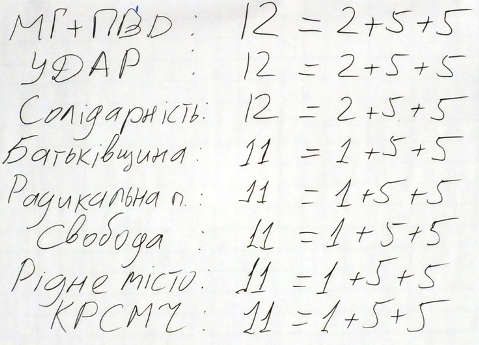 МГ+ПВД: 12 = 2+5+5
УДАР : 12 = 2+5+5
Солідарність: 12 = 2+5+5
Батьківщина: 11 = 1+5+5
Радикальна п.: 11 = 1+5+5
Свобода : 11 = 1+5+5
Рідне місто: 11 = 1+5+5
КРСМЧ : 11 = 1+5+5